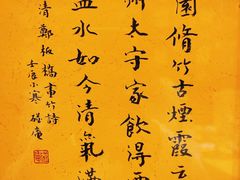 園脩竹古煙霞云
州太守家飲得
盃水如今清氣滿
清鄭板橋畫竹詩
壬辰小寒